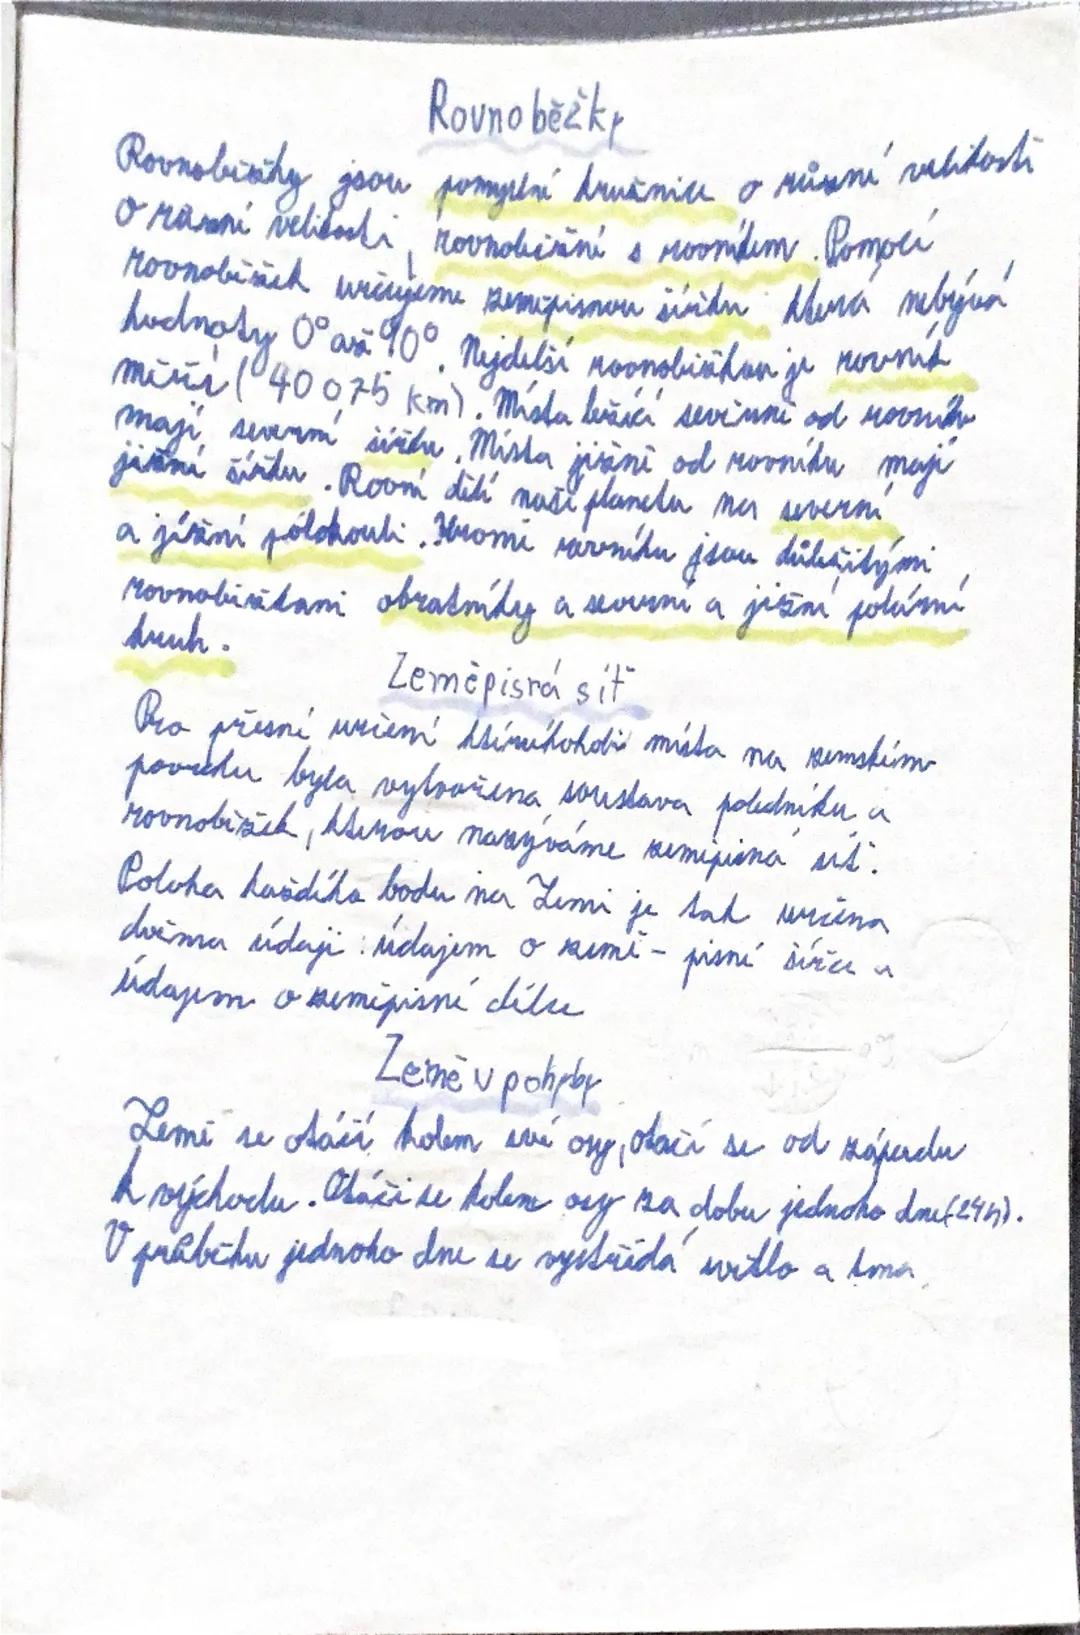 Rovnoběžky
Rovnoběžky jsou pomyslné kružnice o různé velikosti
o různé velikosti, rovnoběžné s rovníkem. Pomocí
rovnoběžek určujeme zeměpisnou šířku která nebývá
hodnoty 0° až 90°. Nejdelší rovnoběžkou je rovník
měří (40 075 km). Místa ležící severně od rovníku
mají severní šířku. Místa jižně od rovníku mají
jižní šířku. Rovní dělí naši planetu na severní
a jižní pólokouli. Kromě rovníku jsou důležitými
rovnoběžkami obratníky a severní a jižní polární
kruh.
Zeměpisná síť
Pro přesné určení kteréhokoli místa na zemském
povrchu byla vytvořena soustava poledníku a
rovnoběžek, kterou nazýváme zeměpisná síť.
Poloha každého bodu na Zemi je tak určena
dvěma údaji: údajem o země- pisné šířce a
údajem o zeměpisné délce
Země v pohybu
Země se otáčí kolem své osy, otáčí se od západu
k východu. Otáčí se kolem osy za dobu jednoho dne (24h).
V průběhu jednoho dne se vystřídá světlo a tma.